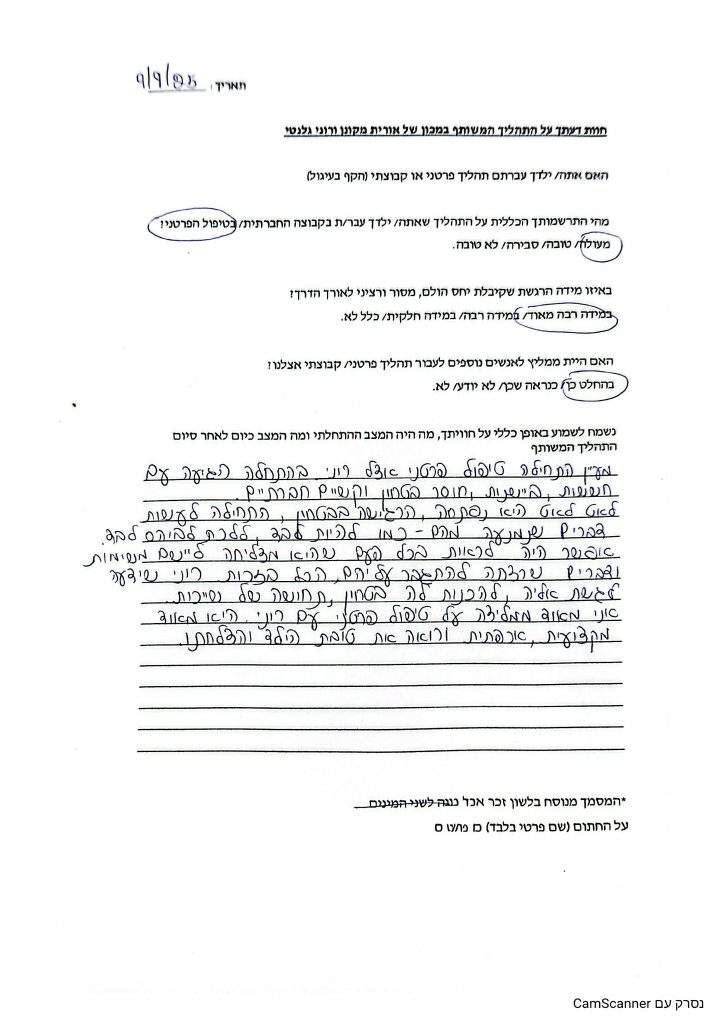 תאריך: 9/9/25
חוות דעתך על התהליך המשותף במכון של אורית מקונן ורוני גלנטי
האם אתה/ ילדך עברתם תהליך פרטני או קבוצתי (הקף בעיגול)
מהי התרשמותך הכללית על התהליך שאתה/ ילדך עבר/ת בקבוצה החברתית/ בטיפול הפרטני?
מעולה/ טובה/ סבירה/ לא טובה.
באיזו מידה הרגשת שקיבלת יחס הולם, מסור ורציני לאורך הדרך?
במידה רבה מאוד/ במידה רבה/ במידה חלקית/ כלל לא.
האם היית ממליץ לאנשים נוספים לעבור תהליך פרטני/ קבוצתי אצלנו?
בהחלט כן/ כנראה שכן/ לא יודע/ לא.
נשמח לשמוע באופן כללי על חוויתך, מה היה המצב ההתחלתי ומה המצב כיום לאחר סיום
התהליך המשותף
מעיין התחילה טיפול פרטני אצל רוני. בהתחלה הגיעה עם
חששות, ביישנית, חוסר בטחון וקשיים חברתיים.
לאט לאט היא נפתחה, הרגישה בבטחון, התחילה לעשות
דברים שנמנעה מהם - כמו להיות לבד, ללכת לביהס לבד
אפשר היה לראות בכל פעם שהיא מצליחה ליישם משימות
ודברים שרצתה להתגבר עליהם. הכל בזכות רוני שידעה
לגשת אליה, להקנות לה בטחון, תחושה של שייכות.
אני מאוד ממליצה על טיפול פרטני עם רוני. היא מאוד
מקצועית, אכפתית ורואה את טובת הילד והצלחתו.
*המסמך מנוסח בלשון זכר אבל נוגה לשני המינים
על החתום (שם פרטי בלבד)
נסרק עם CamScanner